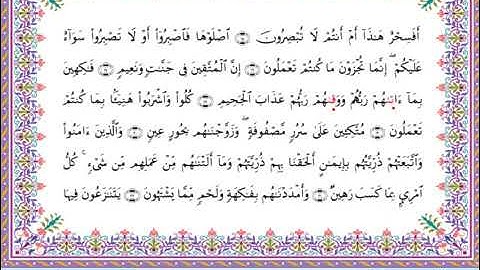 أَفَسِحْرٌ هَٰذَآ أَمْ أَنتُمْ لَا تُبْصِرُونَ ۝ ٱصْلَوْهَا فَٱصْبِرُوٓا۟ أَوْ لَا تَصْبِرُوا۟ سَوَآءٌ
عَلَيْكُمْ ۖ إِنَّمَا تُجْزَوْنَ مَا كُنتُمْ تَعْمَلُونَ ۝ إِنَّ ٱلْمُتَّقِينَ فِى جَنَّٰتٍ وَنَعِيمٍ ۝ فَٰكِهِينَ
بِمَآ ءَاتَىٰهُمْ رَبُّهُمْ وَوَقَىٰهُمْ رَبُّهُمْ عَذَابَ ٱلْجَحِيمِ ۝ كُلُوا۟ وَٱشْرَبُوا۟ هَنِيٓـًٔۢا بِمَا كُنتُمْ
تَعْمَلُونَ ۝ مُتَّكِـِٔينَ عَلَىٰ سُرُرٍ مَّصْفُوفَةٍ ۖ وَزَوَّجْنَٰهُم بِحُورٍ عِينٍ ۝ وَٱلَّذِينَ ءَامَنُوا۟
وَٱتَّبَعَتْهُمْ ذُرِّيَّتُهُم بِإِيمَٰنٍ أَلْحَقْنَا بِهِمْ ذُرِّيَّتَهُمْ وَمَآ أَلَتْنَٰهُم مِّنْ عَمَلِهِم مِّن شَىْءٍ ۚ كُلُّ
ٱمْرِئٍۭ بِمَا كَسَبَ رَهِينٌ ۝ وَأَمْدَدْنَٰهُم بِفَٰكِهَةٍ وَلَحْمٍ مِّمَّا يَشْتَهُونَ ۝ يَتَنَٰزَعُونَ فِيهَا